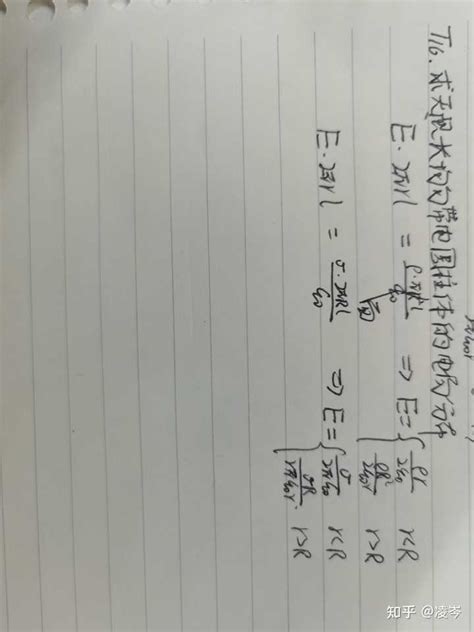 T16. 求无限长均匀带电圆柱体的电场分布
E · 2πrl = ρ·πr²l/ε₀ ⇒ E = { ρr/2ε₀ r<R
ρR²/2ε₀r r>R
面
E · 2πrl = σ·2πRl/ε₀ ⇒ E = { σ/2πε₀ r<R
σR/2πε₀r r>R
知乎 @凌岑